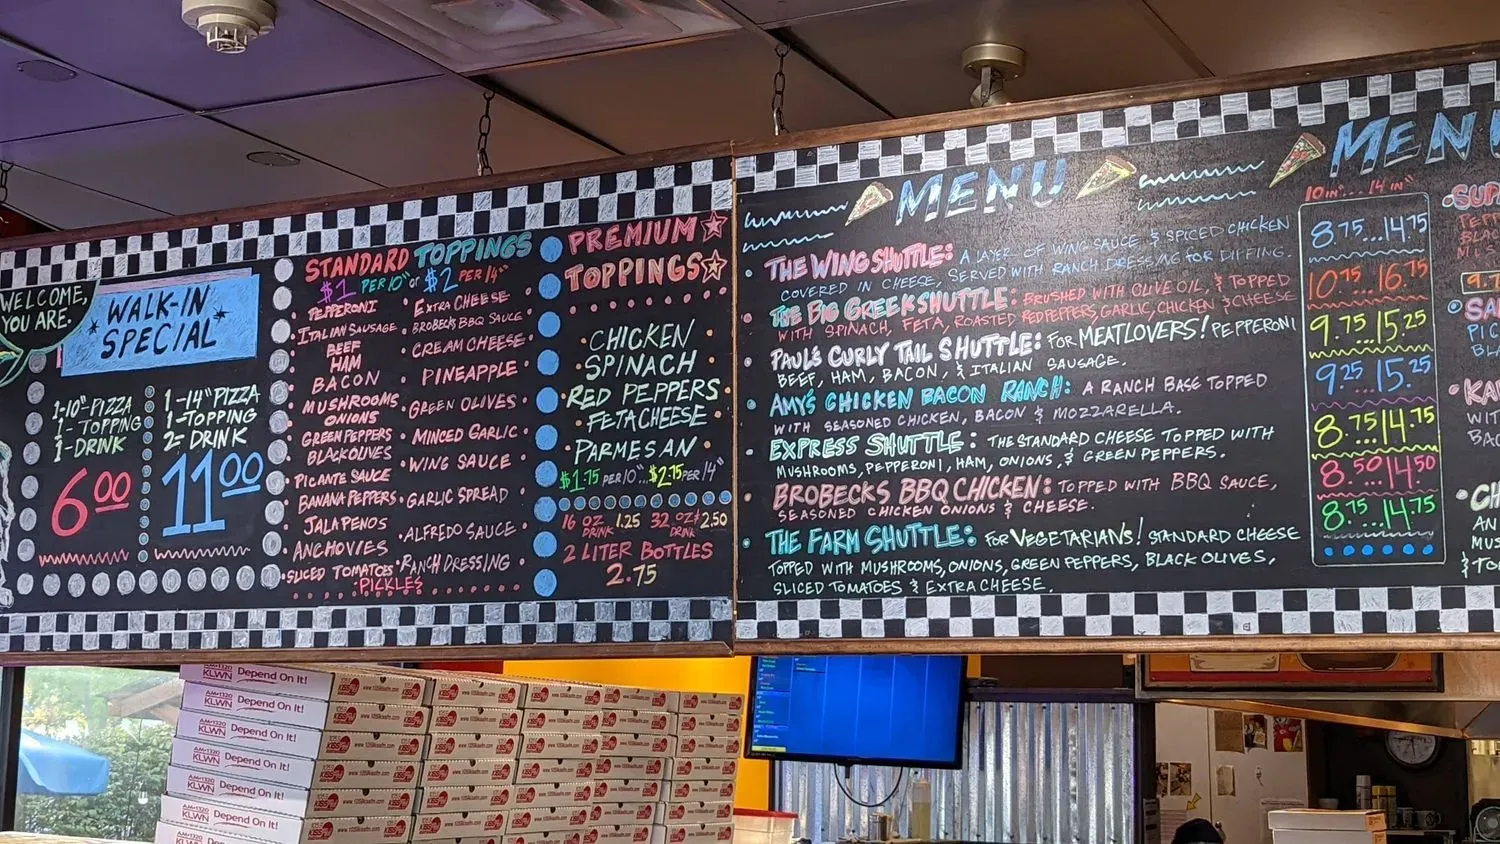 WELCOME,
YOU ARE.
WALK-IN
SPECIAL
1-10" PIZZA
1-TOPPING
1-DRINK
6.00
1-14" PIZZA
1-TOPPING
2-DRINK
11.00
STANDARD TOPPINGS
$1 PER 10" or $2 PER 14"
PEPPERONI
ITALIAN SAUSAGE
BEEF
HAM
BACON
MUSHROOMS
ONIONS
GREEN PEPPERS
BLACK OLIVES
PICANTE SAUCE
BANANA PEPPERS
JALAPENOS
ANCHOVIES
SLICED TOMATOES
PICKLES
EXTRA CHEESE
BROBECKS BBQ SAUCE
CREAM CHEESE
PINEAPPLE
GREEN OLIVES
MINCED GARLIC
WING SAUCE
GARLIC SPREAD
ALFREDO SAUCE
RANCH DRESSING
PREMIUM
TOPPINGS
CHICKEN
SPINACH
RED PEPPERS
FETA CHEESE
PARMESAN
$1.75 PER 10"... $2.75 PER 14"
16 OZ DRINK 1.25 32 OZ DRINK $2.50
2 LITER BOTTLES
2.75
MENU
THE WING SHUTTLE: A LAYER OF WING SAUCE & SPICED CHICKEN
COVERED IN CHEESE, SERVED WITH RANCH DRESSING FOR DIFFING.
THE BIG GREEK SHUTTLE: BRUSHED WITH OLIVE OIL, & TOPPED
WITH SPINACH, FETA, ROASTED RED PEPPERS, GARLIC, CHICKEN & CHEESE
PAUL'S CURLY TAIL SHUTTLE: FOR MEATLOVERS! PEPPERONI
BEEF, HAM, BACON, & ITALIAN SAUSAGE.
AMY'S CHICKEN BACON RANCH: A RANCH BASE TOPPED
WITH SEASONED CHICKEN, BACON & MOZZARELLA.
EXPRESS SHUTTLE: THE STANDARD CHEESE TOPPED WITH
MUSHROOMS, PEPPERONI, HAM, ONIONS, & GREEN PEPPERS.
BROBECKS BBQ CHICKEN: TOPPED WITH BBQ SAUCE,
SEASONED CHICKEN ONIONS & CHEESE.
THE FARM SHUTTLE: FOR VEGETARIANS! STANDARD CHEESE
TOPPED WITH MUSHROOMS, ONIONS, GREEN PEPPERS, BLACK OLIVES,
SLICED TOMATOES & EXTRA CHEESE.
10 IN"....14 IN"
8.75...14.75
10.75...16.75
9.75...15.25
9.25...15.25
8.75...14.75
8.50...14.50
8.75...14.75
MENU
SUP
PEPP
BLAC
9.7
SA
PIC
BLA
KA
WIT
BAC
CH
AN
MUS
& TO
AM•1320
KLWN
Depend On It!
105.9
KISS
www.1059kissfm.com